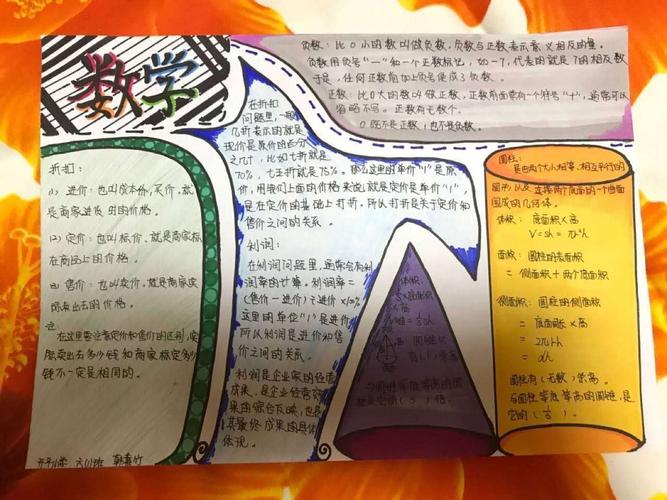 数学
负数：比0小的数叫做负数，负数与正数表示意义相反的量。
负数用负号"－"和一个正数标记，如－7，代表的就是7的相反数
于是，任何正数前加上负号便成了负数。
正数：比0大的数叫做正数，正数前面常有一个符号"+"，通常可以
省略不写。正数有无数个。
0既不是正数，也不是负数。
折扣：
(1)进价：也叫成本价，买价，就
是商家进货时的价格。
(2)定价：也叫标价，就是商家标
在商品上的价格。
售价：也叫卖价，就是商家实
际卖出去的价格。
注
在这里要注意定价和售价的区别，实
际卖出去多少钱和商家标定多少
钱不一定是相同的。
六(1)班
在折扣
问题里，一般
几折表示的就是
现价是原价的百分
之几十，比如七折就是
70%，七五折就是75%。那么这里的单位"1"是原
价，用我们上面的价格来说就是定价是单位"1"，
是在定价的基础上打折。所以打折是关于定价和
售价之间的关系。
利润：
在利润问题里，通常会有利
润率的计算。利润率=
(售价－进价)÷进价×100%
这里的单位"1"是进价
所以利润是进价和售
价之间的关系。
利润是企业家的经营
成果，是企业经营效
果的综合反映，也是
其最终成果的具体
体现。
体积：
圆锥
有(1)条高。
与圆锥等底等高的圆
圆柱：
是由两个大小相等、相互平行的
圆形以及连接两个底面的一个曲面
围成的几何体。
体积：底面积×高
V=Sh=πr²h
面积：圆柱的表面积
=侧面积+两个底面积
侧面积：圆柱的侧面积
=底面周长×高
=2πrh
=dh
圆柱有(无数)条高。
与圆柱等底等高的圆锥，是
它的(1/3)。